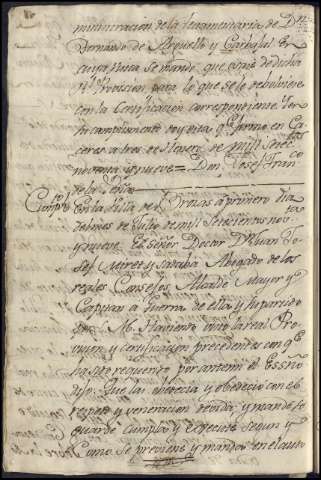 ministracion de la testamentaria de Dn
Bernardo de Arguello y Carbajal Es
cuya vista se mandó que usase de dicha
Rl Provision para lo que se le debolviese
con la Certificacion correspondiente
cumplimiento doy esta qe firmo en Ca
ceres a tres de Henero de mil Setecs
noventa y nueve = Don Josef Fran
de la Peña
Cumplto En la Villa de Brozas a primero dia
del mes de Julio de mil Setecientos nov
y nueve. El Señor Doctor Dn Juan Jo
sef Miret y Sababa Abogado de los
reales Consejos Alcalde Mayor y
Capitan a Guerra de ella y su partido
por S. M. Haviendo visto la real Pro
vision y certificacion precedentes con qe
ha sido requerido por ante mi el Essno
dijo: Que las obedecia y obedecio con el
respeto y veneracion devida, y mandó se
guarde cumpla y execute segun y
como se previene y manda en el auto